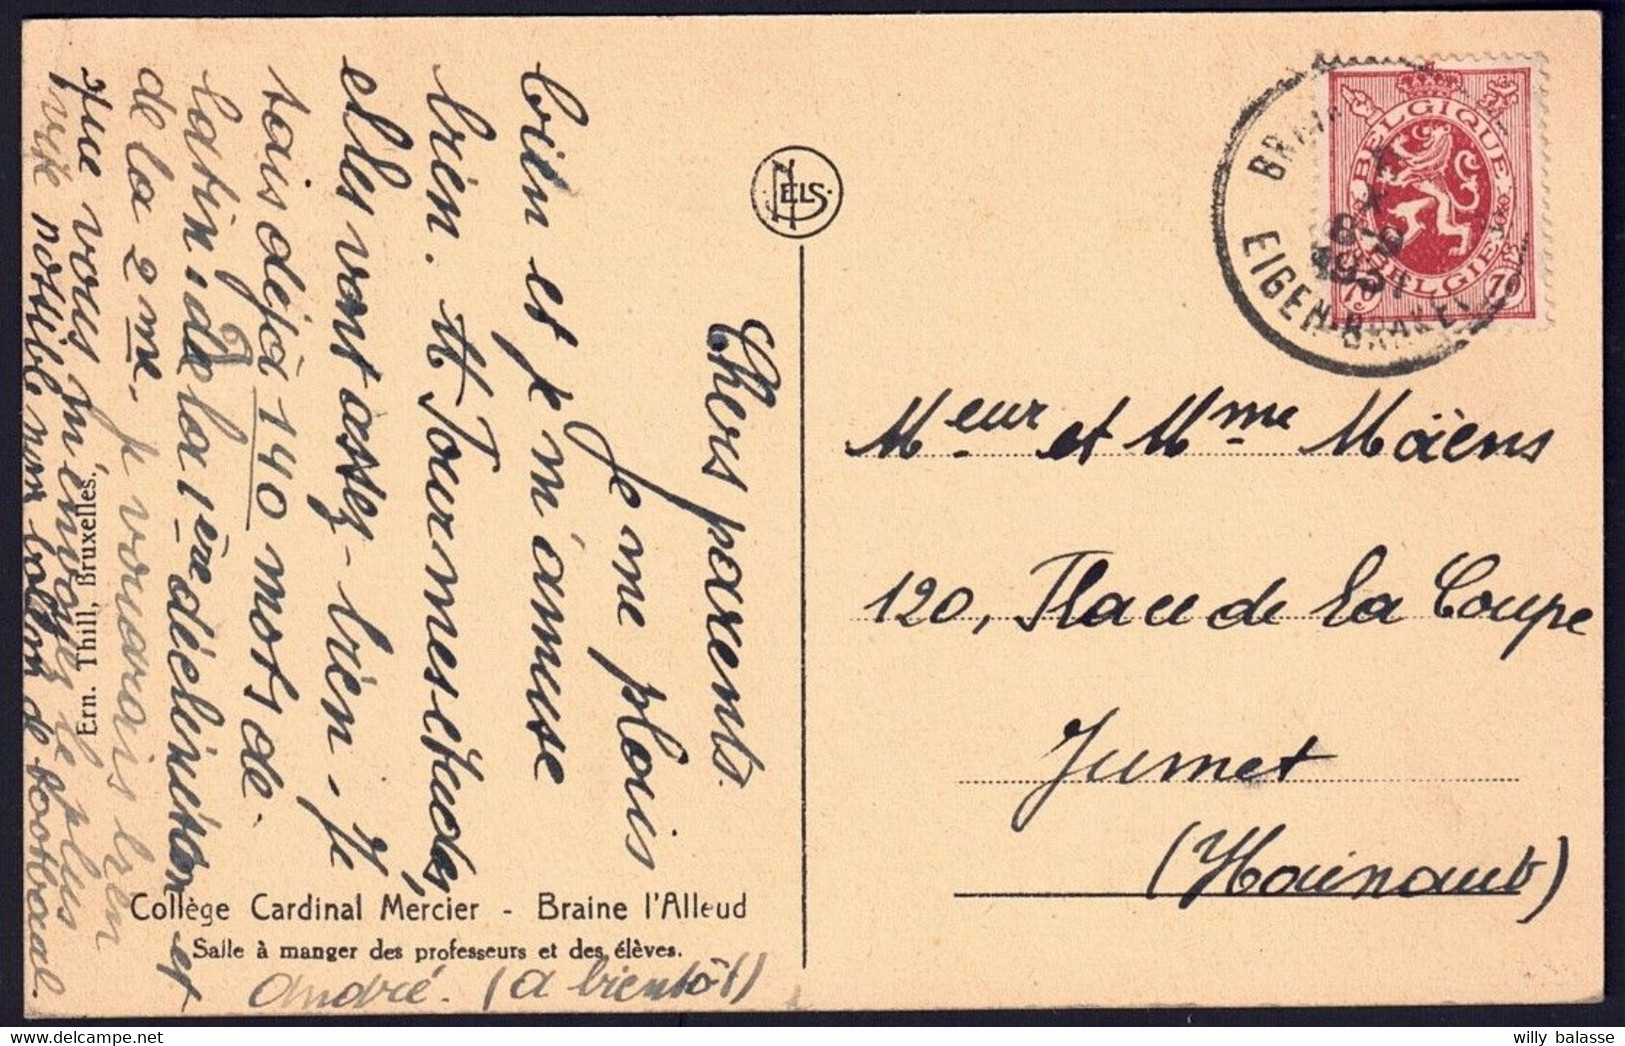 Chers parents.
Je me plais
bien et je m'amuse
bien. Pour mes études,
elles vont assez bien. Je
sais déjà 140 mots de
latin; de la 1ère déclinaison et
de la 2me. Je voudrais bien
que vous m'envoyiez le plus
vite possible mon ballon de football.
André. (a bientôt)
Collège Cardinal Mercier - Braine l'Alleud
Salle à manger des professeurs et des élèves.
Ern. Thill, Bruxelles.
NELS
BELGIQUE
BELGIE
70
70
BRAIN
EIGEN-BRAKEL
1931
Meur et Mme Mäens
120, Place de la Coupe
Jumet
(Hainaut)
willy balasse